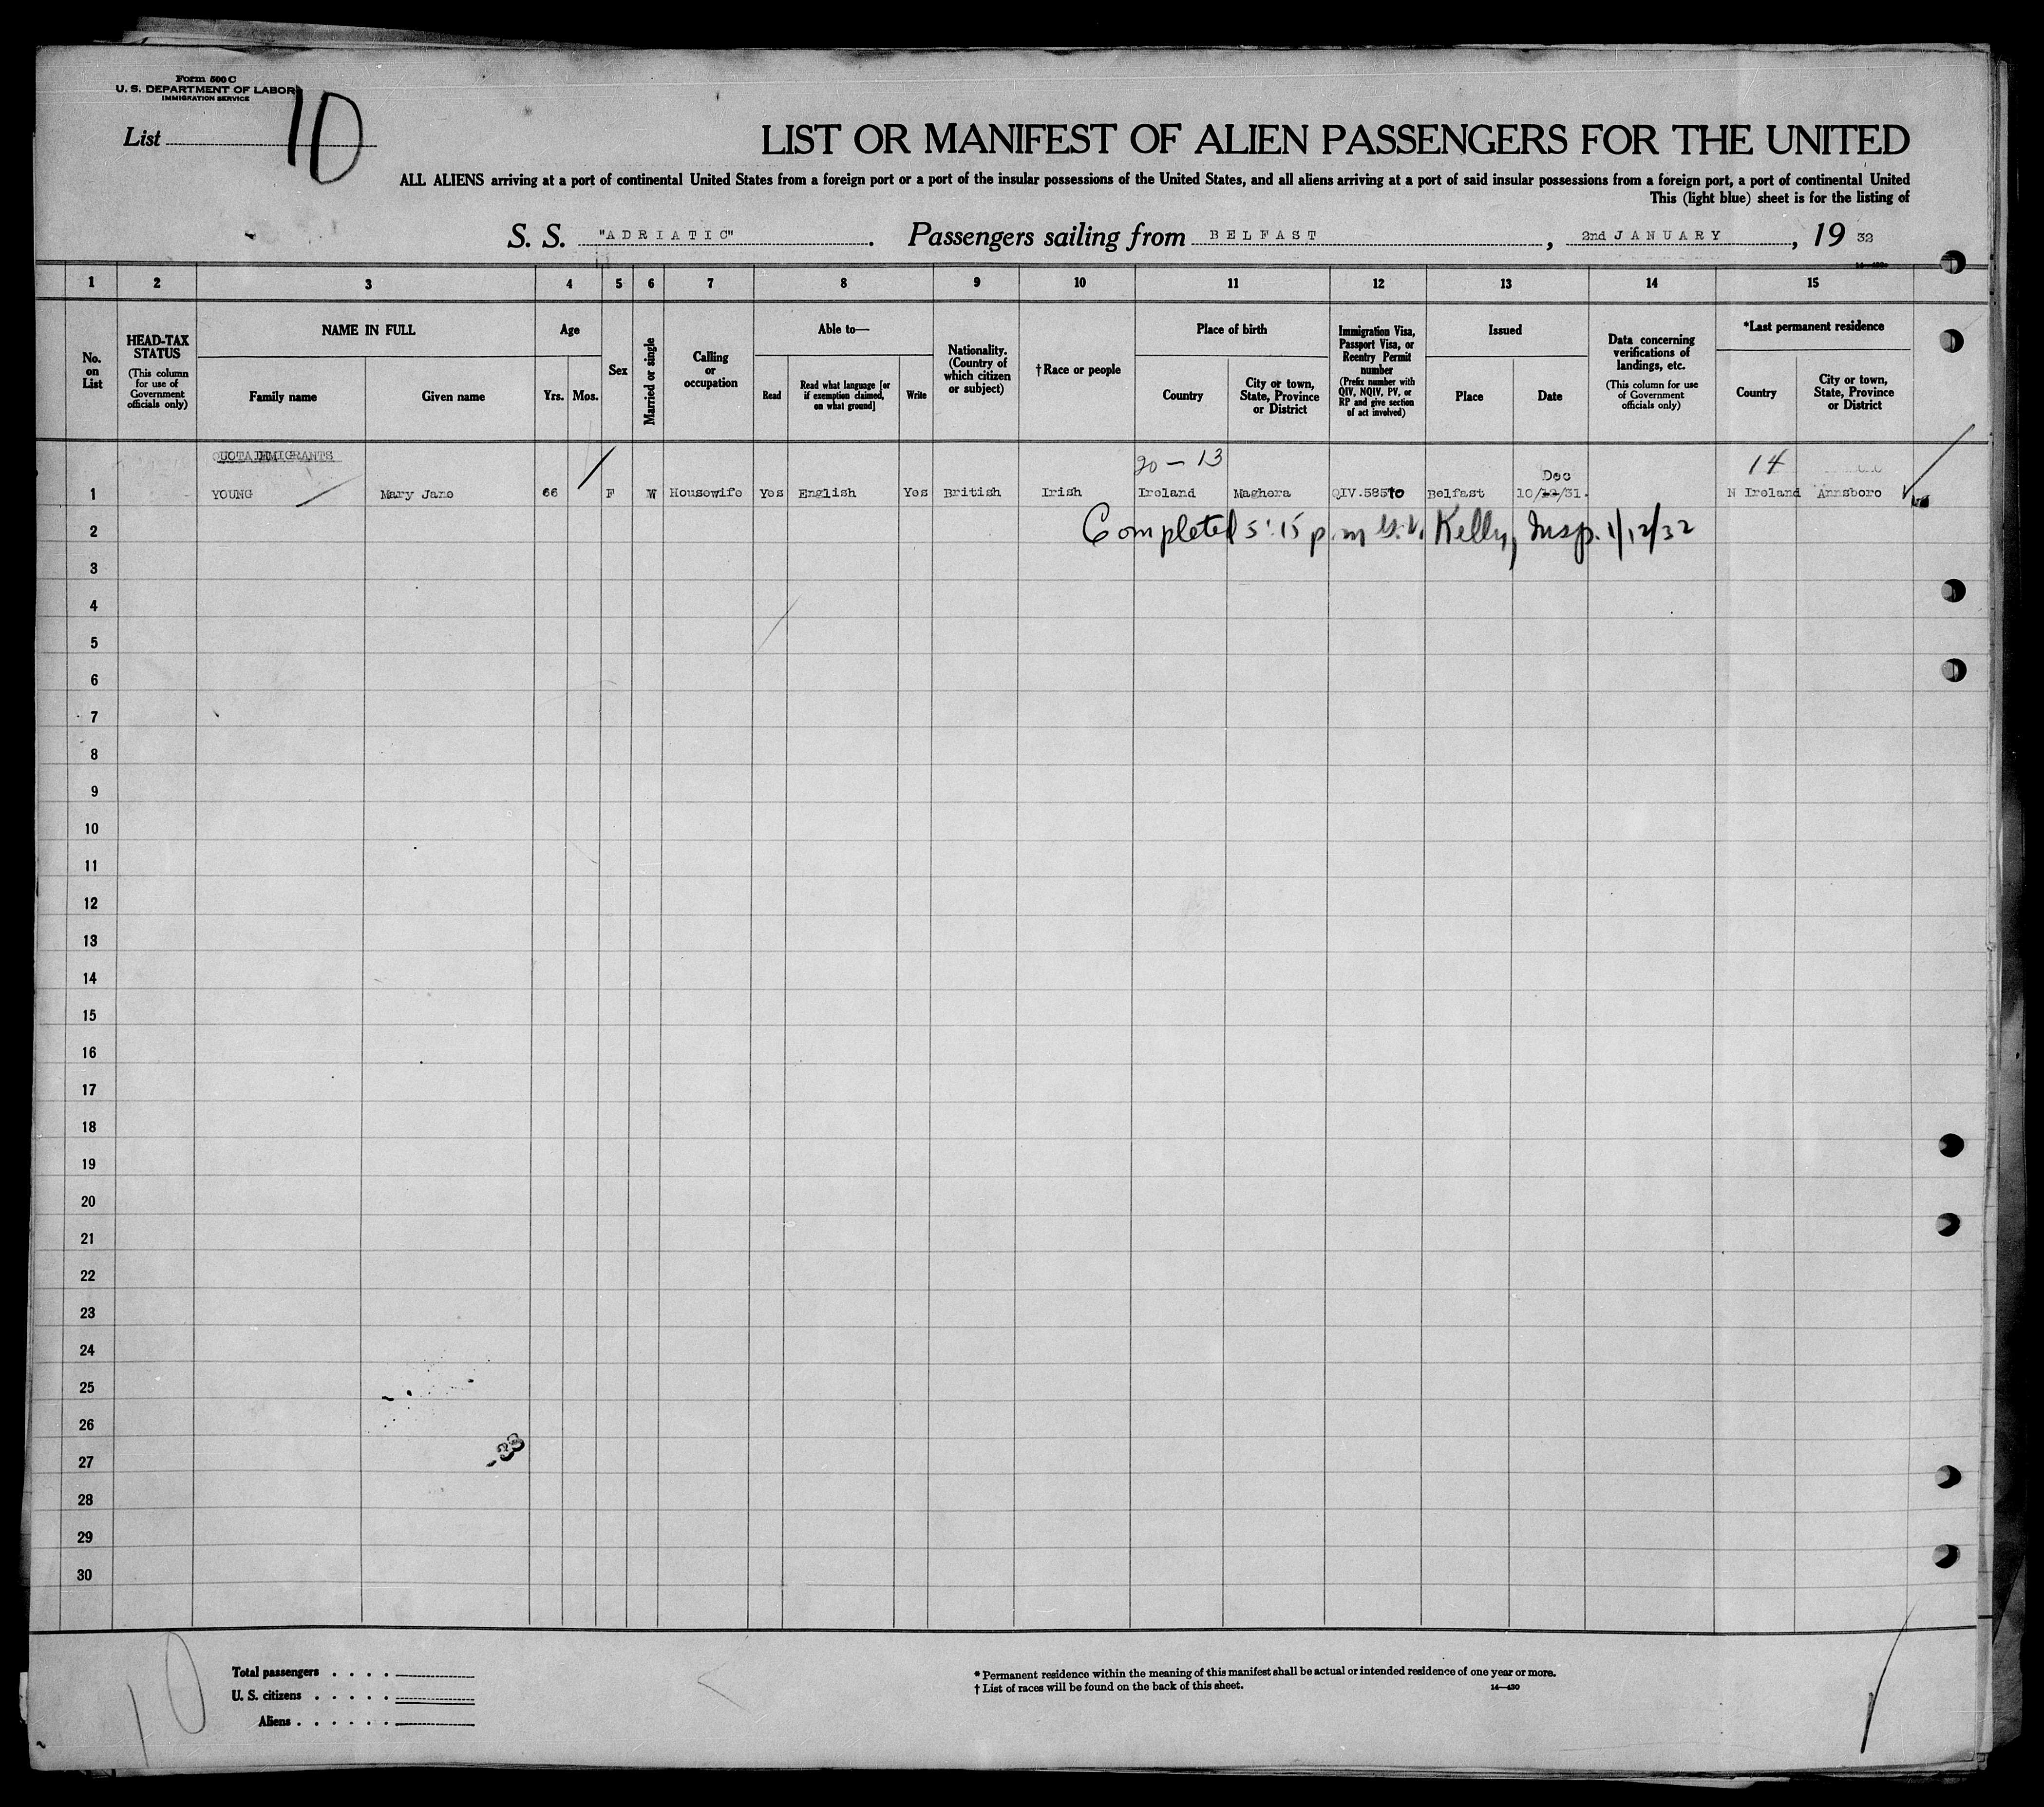 Form 500 C
U. S. DEPARTMENT OF LABOR
IMMIGRATION SERVICE
List 10
LIST OR MANIFEST OF ALIEN PASSENGERS FOR THE UNITED
ALL ALIENS arriving at a port of continental United States from a foreign port or a port of the insular possessions of the United States, and all aliens arriving at a port of said insular possessions from a foreign port, a port of continental United
This (light blue) sheet is for the listing of
S. S. "ADRIATIC". Passengers sailing from BELFAST, 2nd JANUARY, 19 32
1 2 3 4 5 6 7 8 9 10 11 12 13 14 15
No. on List
HEAD-TAX STATUS (This column for use of Government officials only)
NAME IN FULL
Family name
Given name
Age
Yrs.
Mos.
Sex
Married or single
Calling or occupation
Able to—
Read
Read what language [or if exemption claimed, on what ground]
Write
Nationality. (Country of which citizen or subject)
† Race or people
Place of birth
Country
City or town, State, Province or District
Immigration Visa, Passport Visa, or Reentry Permit number (Prefix number with QIV, NQIV, PV, or RP and give section of act involved)
Issued
Place
Date
Data concerning verifications of landings, etc. (This column for use of Government officials only)
*Last permanent residence
Country
City or town, State, Province or District
20 - 13
14
Dec
1 YOUNG Mary Jane 66 F W Housewife Yes English Yes British Irish Ireland Maghera Belfast N Ireland Annsboro
2 Completed 5:15 p.m Kelly, Insp. 1/12/32
3
4
5
6
7
8
9
10
11
12
13
14
15
16
17
18
19
20
21
22
23
24
25
26
27
28
29
30
-33
10
Total passengers . . . .
U. S. citizens . . . . .
Aliens . . . . . .
* Permanent residence within the meaning of this manifest shall be actual or intended residence of one year or more.
† List of races will be found on the back of this sheet.
14—430